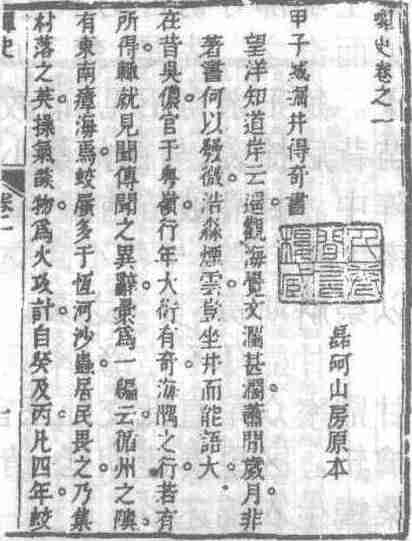 蟫史卷之一
磊砢山房原本
甲子城掘井得奇書
望洋知道岸云遥觀海覺文瀾甚濶蕭閒歲月非
著書何以發微浩淼煙雲豈坐井而能語大
在昔吳儂官于粵嶺行年大衍有奇海隅之行若有
所得輒就見聞傳聞之異辭彙爲一編云循州之隩
有東南瘴海焉蛟蜃多于恆河沙蟲居民畏之乃集
村落之英操氣談物爲火攻計自癸及丙凡四年蛟